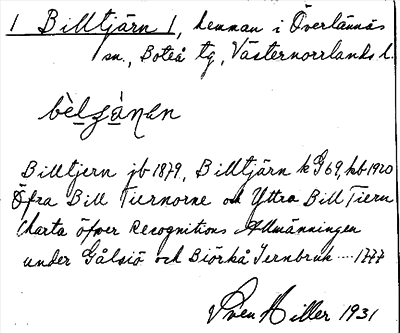 1 Billtjärn 1, hemman i Överlännäs
sn., Boteå tg, Västernorrlands l.
Billtjern jb 1879, Billtjärn k G 69, kb 1920
Öfra Bill Tiernorne och Yttra Bill Tiern
Charta öfver Recognitions Allmänningen
under Gålsiö och Biörkå Jernbruk ---- 1777
Sven Hiller 1931